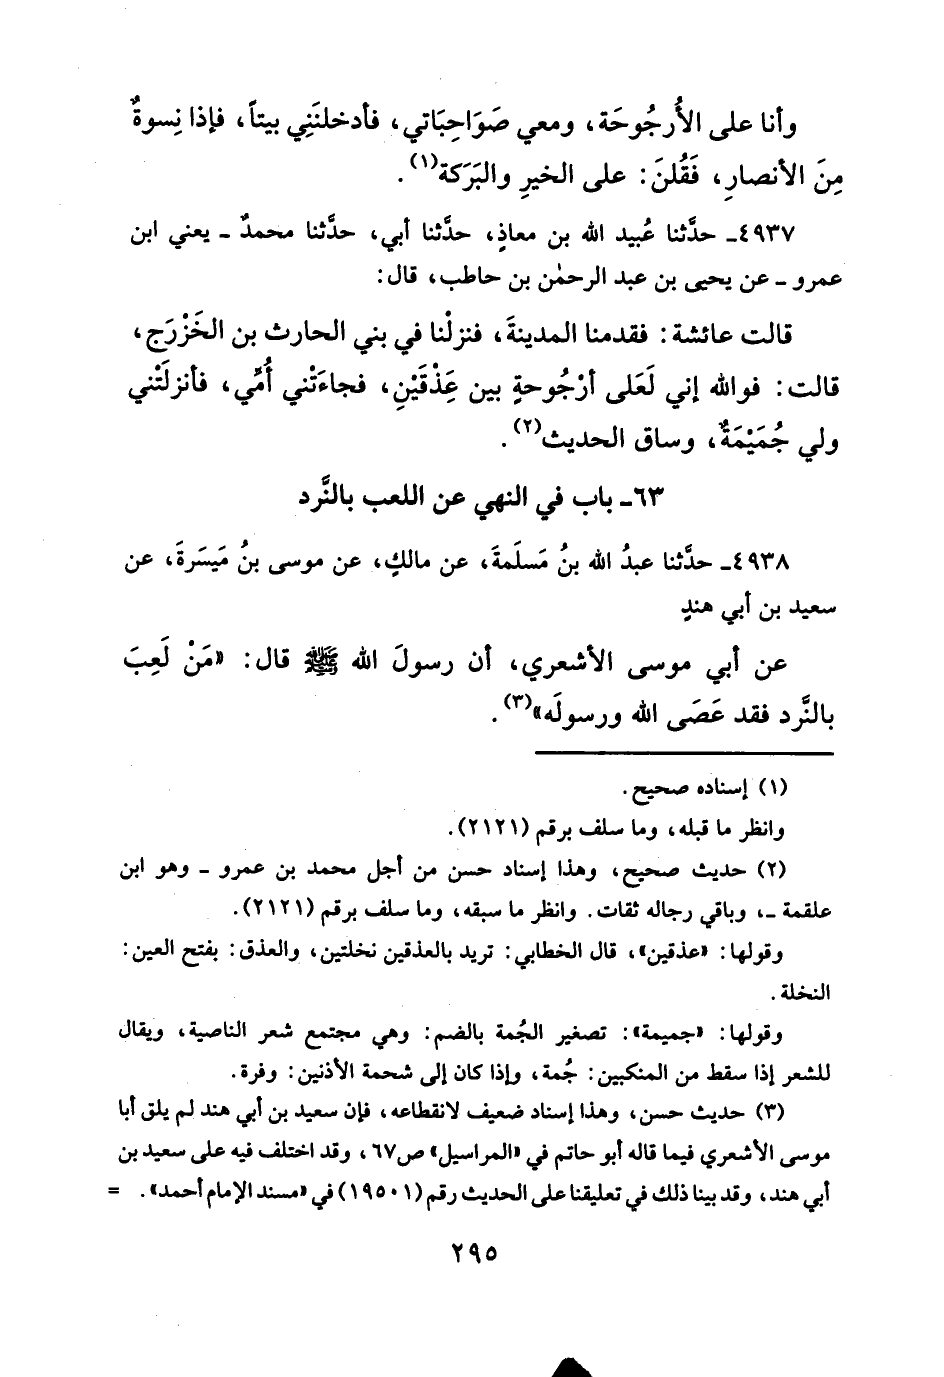 وأنا على الأُرجُوحَة، ومعي صَوَاحِبَاتي، فأدخلنَنِي بيتاً، فإذا نِسوةٌ
مِنَ الأنصارِ، فَقُلنَ: على الخيرِ والبَرَكة(١).
٤٩٣٧ـ حدَّثنا عُبيد الله بن معاذٍ، حدَّثنا أبي، حدَّثنا محمدٌ ـ يعني ابن
عمرو ـ عن يحيى بن عبد الرحمٰن بن حاطب، قال:
قالت عائشة: فقدمنا المدينةَ، فنزلْنا في بني الحارث بن الخَزْرَج،
قالت: فوالله إني لَعَلى أرْجُوحةٍ بين عِذْقَيْنِ، فجاءَتْني أُمِّي، فأنزلَتْني
ولي جُمَيْمَةٌ، وساق الحديث(٢).
٦٣ـ باب في النهي عن اللعب بالنَّرد
٤٩٣٨ـ حدَّثنا عبدُ الله بنُ مَسلَمةَ، عن مالكٍ، عن موسى بنُ مَيسَرةَ، عن
سعيد بن أبي هندٍ
عن أبي موسى الأشعري، أن رسولَ الله ﷺ قال: «مَنْ لَعِبَ
بالنَّرد فقد عَصَى الله ورسولَه»(٣).
(١) إسناده صحيح.
وانظر ما قبله، وما سلف برقم (٢١٢١).
(٢) حديث صحيح، وهذا إسناد حسن من أجل محمد بن عمرو ـ وهو ابن
علقمة ـ، وباقي رجاله ثقات. وانظر ما سبقه، وما سلف برقم (٢١٢١).
وقولها: «عذقين»، قال الخطابي: تريد بالعذقين نخلتين، والعذق: بفتح العين:
النخلة.
وقولها: «جميمة»: تصغير الجُمة بالضم: وهي مجتمع شعر الناصية، ويقال
للشعر إذا سقط من المنكبين: جُمة، وإذا كان إلى شحمة الأذنين: وفرة.
(٣) حديث حسن، وهذا إسناد ضعيف لانقطاعه، فإن سعيد بن أبي هند لم يلق أبا
موسى الأشعري فيما قاله أبو حاتم في «المراسيل» ص٦٧، وقد اختلف فيه على سعيد بن
أبي هند، وقد بينا ذلك في تعليقنا على الحديث رقم (١٩٥٠١) في «مسند الإمام أحمد». =
٢٩٥